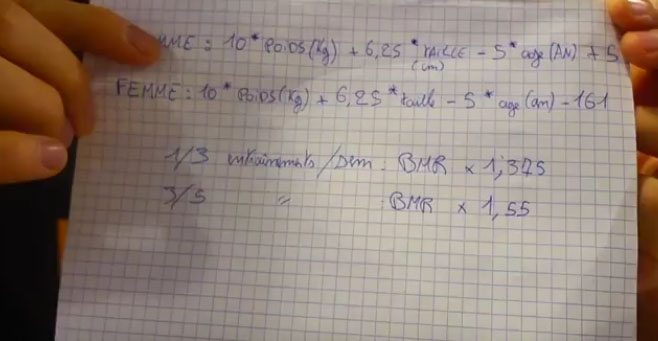 MME : 10* POIDS (kg) + 6,25 * TAILLE - 5* age (AN) + 5
(cm)
FEMME : 10* POIDS (Kg) + 6,25 * taille - 5 * age (an) - 161
1/3 entrainements / : BMR × 1,375
3/5 " : BMR × 1,55